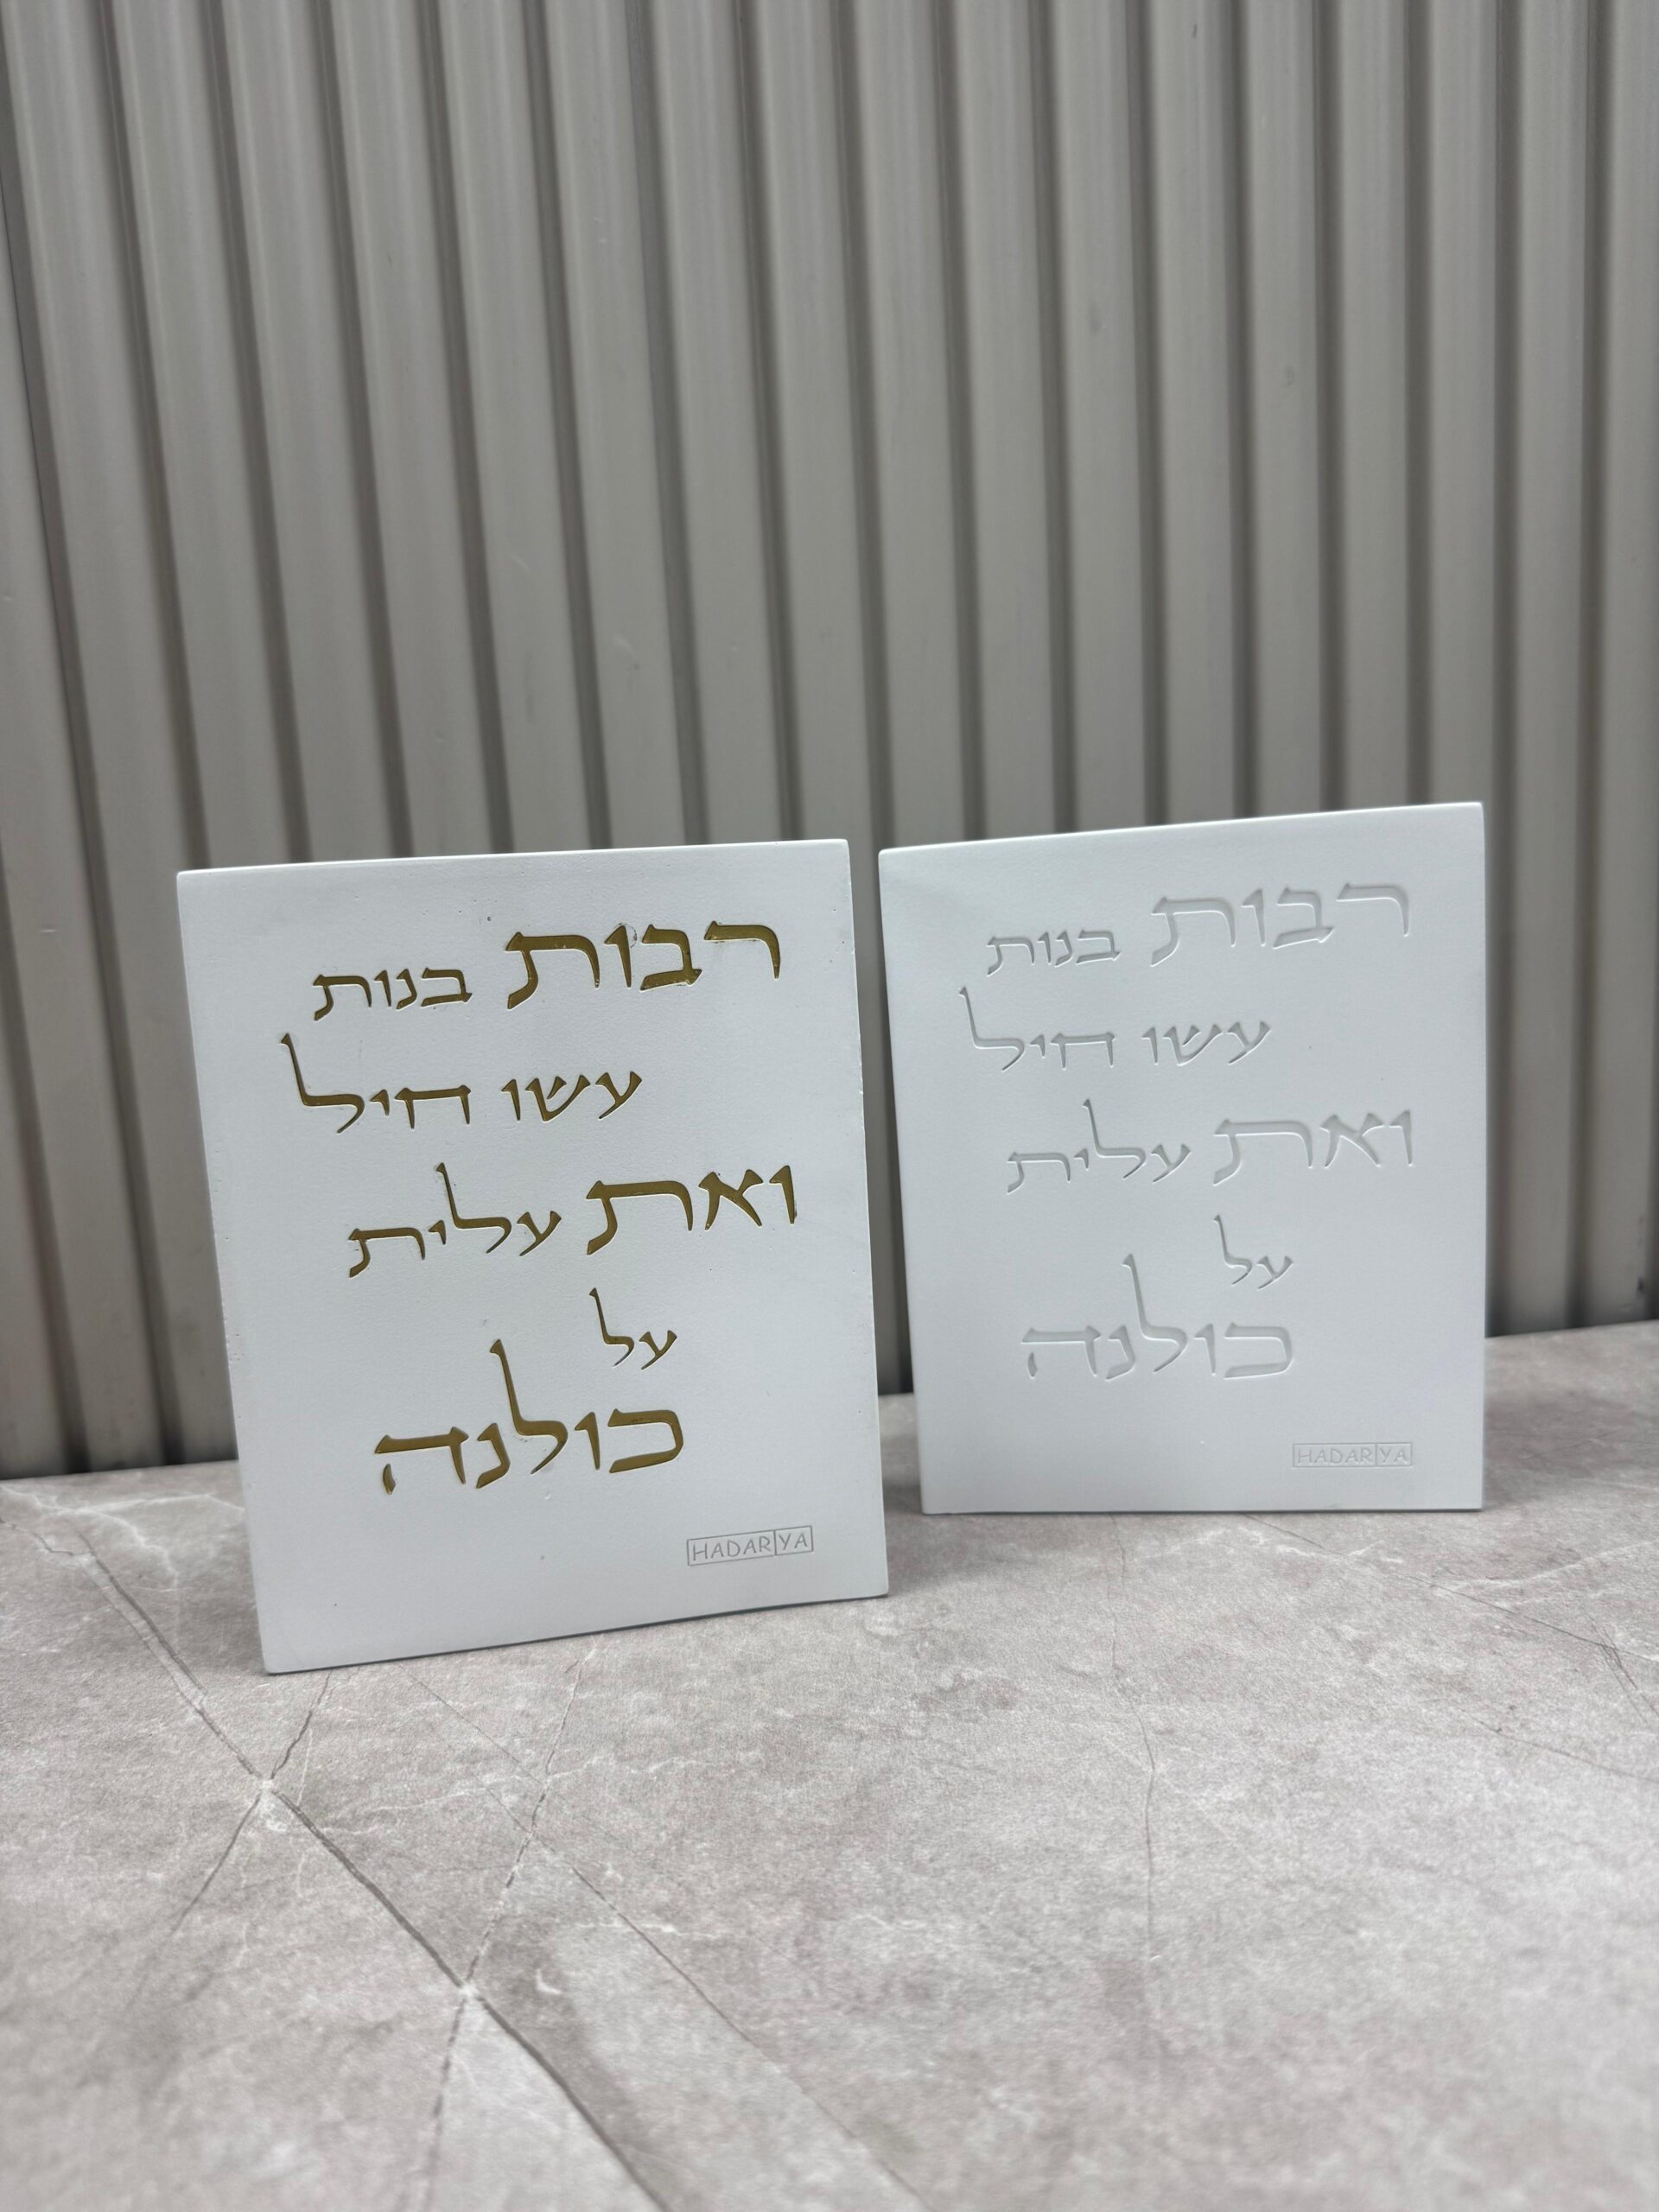 רבות בנות
עשו חיל
ואת עלית
על
כולנה
HADARYA
רבות בנות
עשו חיל
ואת עלית
על
כולנה
HADARYA